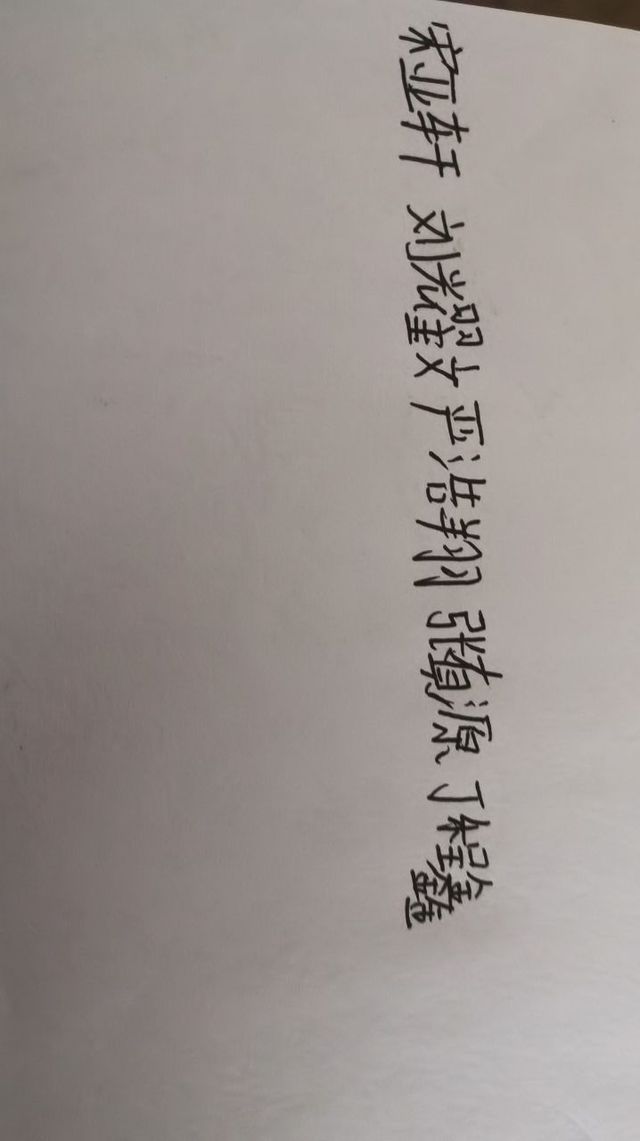 宋亚轩 刘耀文 严浩翔 张真源 丁程鑫